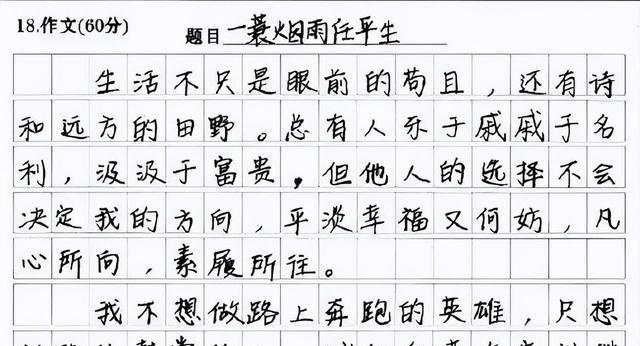 18.作文(60分)
题目 一蓑烟雨任平生
生活不只是眼前的苟且，还有诗
和远方的田野。总有人乐于戚戚于名
利，汲汲于富贵，但他人的选择不会
决定我的方向，平淡幸福又何妨，凡
心所向，素履所往。
我不想做路上奔跑的英雄，只想